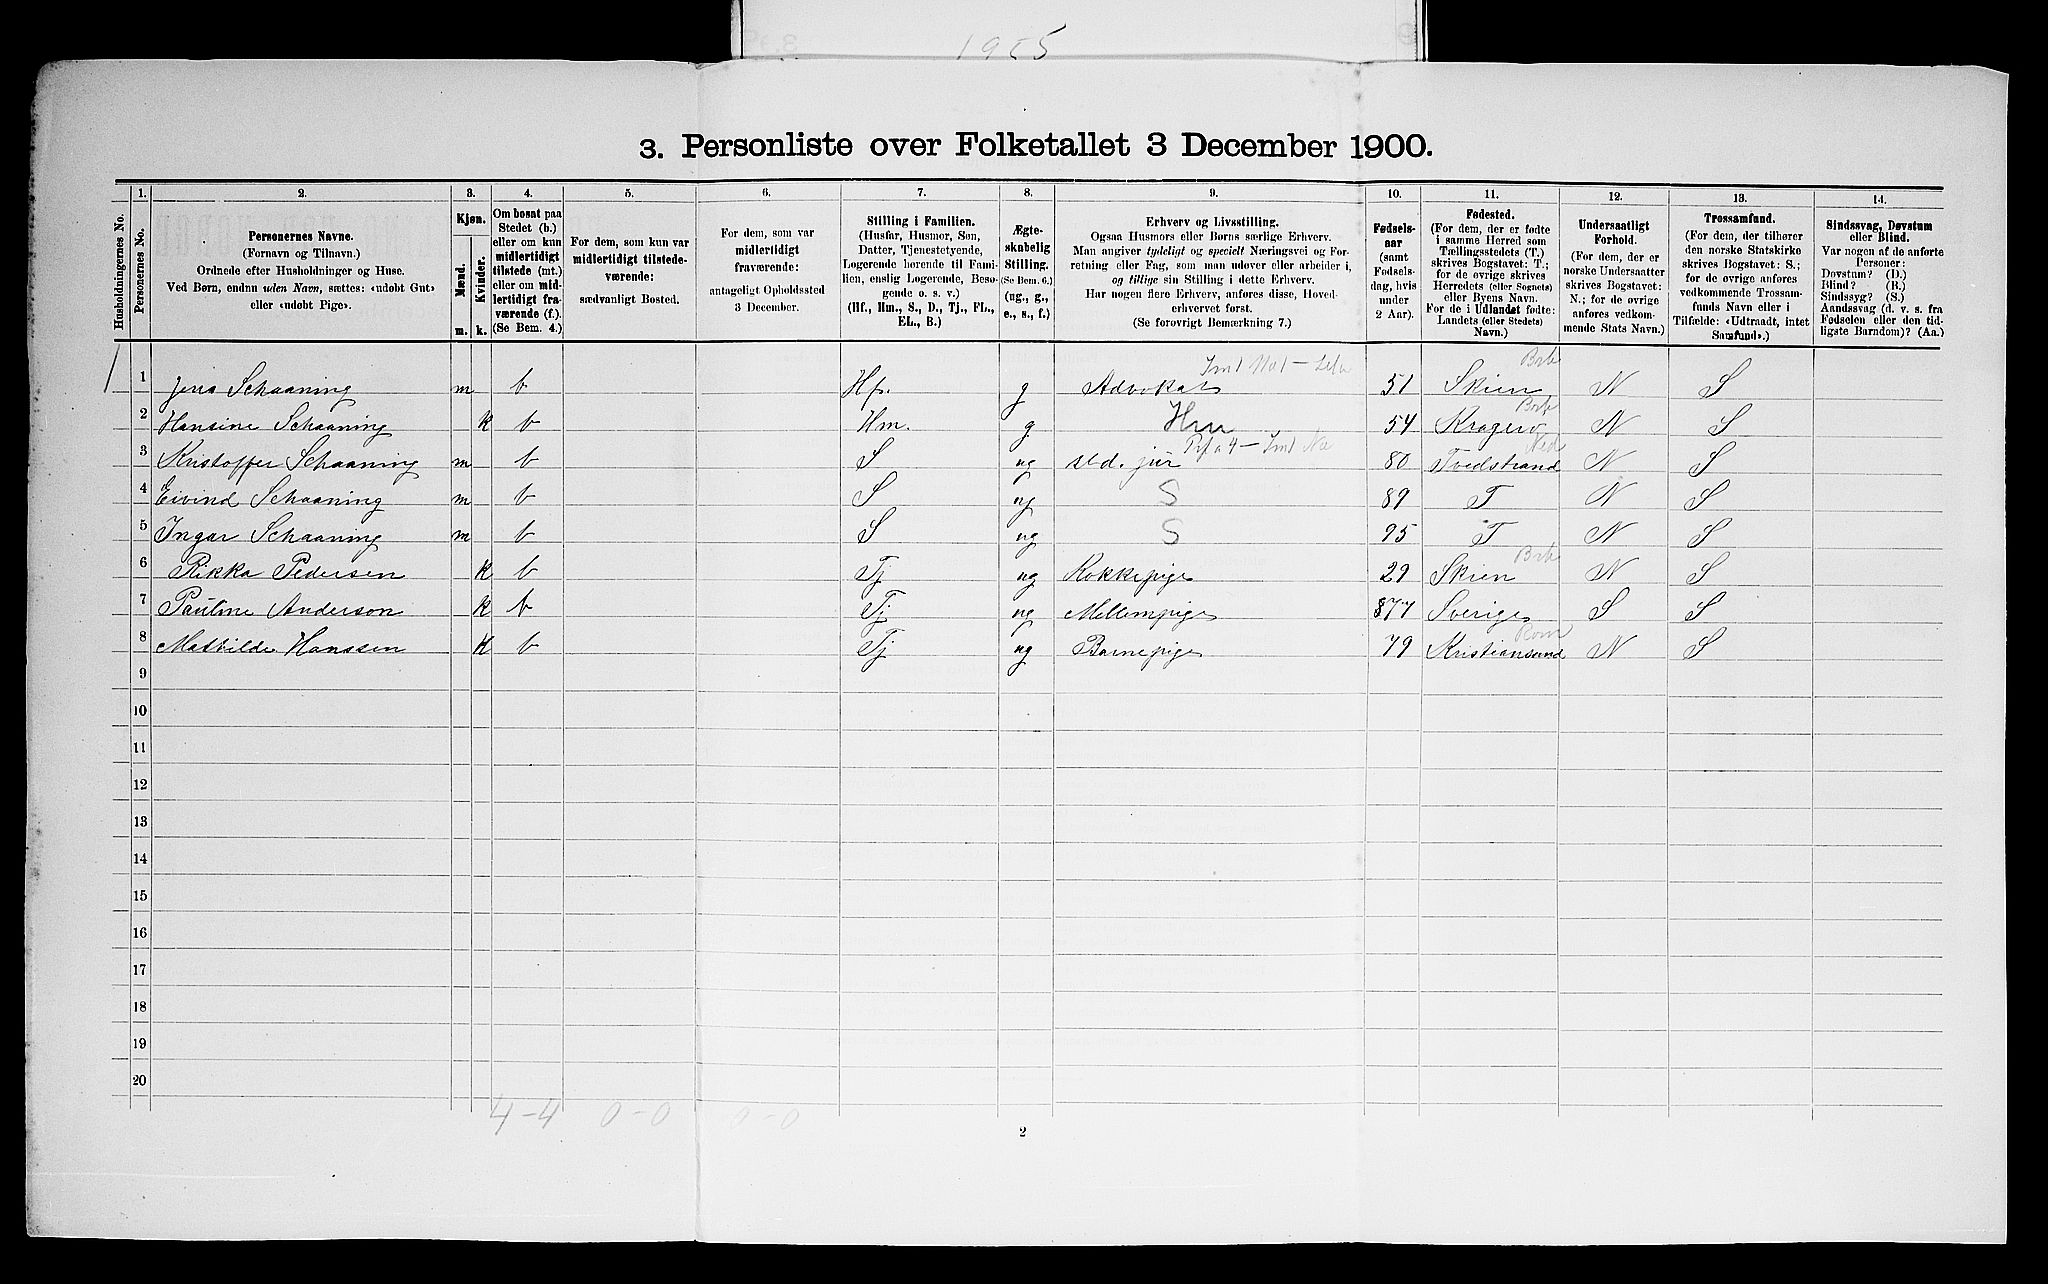 1955
3. Personliste over Folketallet 3 December 1900.
1. 2. 3. 4. 5. 6. 7. 8. 9. 10. 11. 12. 13. 14.
Husholdningernes No.
Personernes No.
Personernes Navne.
(Fornavn og Tilnavn.)
Ordnede efter Husholdninger og Huse.
Ved Børn, endnu uden Navn, sættes: «udøbt Gut»
eller «udøbt Pige».
Kjøn.
Mænd.
Kvinder.
m. k.
Om bosat paa
Stedet (b.)
eller om kun
midlertidigt
tilstede (mt.)
eller om mid-
lertidigt fra-
værende (f.)
(Se Bem. 4.)
For dem, som kun var
midlertidigt tilstede-
værende:
sædvanligt Bosted.
For dem, som var
midlertidigt
fraværende:
antageligt Opholdssted
3 December.
Stilling i Familien.
(Husfar, Husmor, Søn,
Datter, Tjenestetyende,
Logerende hørende til Fami-
lien, enslig Logerende, Besø-
gende o. s. v.)
(Hf., Hm., S., D., Tj., FL.,
EL., B.)
Ægte-
skabelig
Stilling.
(Se Bem. 6.)
(ug., g.,
e., s., f.)
Erhverv og Livsstilling.
Ogsaa Husmors eller Børns særlige Erhverv.
Man angiver tydeligt og specielt Næringsvei og For-
retning eller Fag, som man udøver eller arbeider i,
og tillige sin Stilling i dette Erhverv.
Har nogen flere Erhverv, anføres disse, Hoved-
erhvervet først.
(Se forøvrigt Bemærkning 7.)
Fødsels-
aar
(samt
Fødsels-
dag, hvis
under
2 Aar).
Fødested.
(For dem, der er fødte
i samme Herred som
Tællingsstedets (T.)
skrives Bogstavet: T.;
for de øvrige skrives
Herredets (eller Sognets)
eller Byens Navn.
For de i Udlandet fødte:
Landets (eller Stedets)
Navn.)
Undersaatligt
Forhold.
(For dem, der er
norske Undersaatter
skrives Bogstavet:
N.; for de øvrige
anføres vedkom-
mende Stats Navn.)
Trossamfund.
(For dem, der tilhører
den norske Statskirke
skrives Bogstavet: S.;
for de øvrige anføres
vedkommende Trossam-
funds Navn eller i
Tilfælde: «Udtraadt, intet
Samfund».)
Sindssvag, Døvstum
eller Blind.
Var nogen af de anførte
Personer:
Døvstum? (D.)
Blind? (B.)
Sindssyg? (S.)
Aandssvag (d. v. s. fra
Fødselen eller den tid-
ligste Barndom)? (Aa.)
1 1 Jens Schaaning m b Hf. g Advokat 51 Skien N S
2 Hansine Schaaning k b Hm. g Hm 54 Kragerø N S
3 Kristoffer Schaaning m b S ug stud. jur 80 Tvedstrand N S
4 Eivind Schaaning m b S ug S 89 T N S
5 Ingar Schaaning m b S ug S 95 T N S
6 Rikka Pedersen k b Tj ug Kokkepige 29 Skien N S
7 Pauline Anderson k b Tj ug Mellempige 877 Sverige S S
8 Mathilde Hanssen k b Tj ug Barnepige 79 Kristiansund N S
9
10
11
12
13
14
15
16
17
18
19
20
4-4 0-0 0-0
2